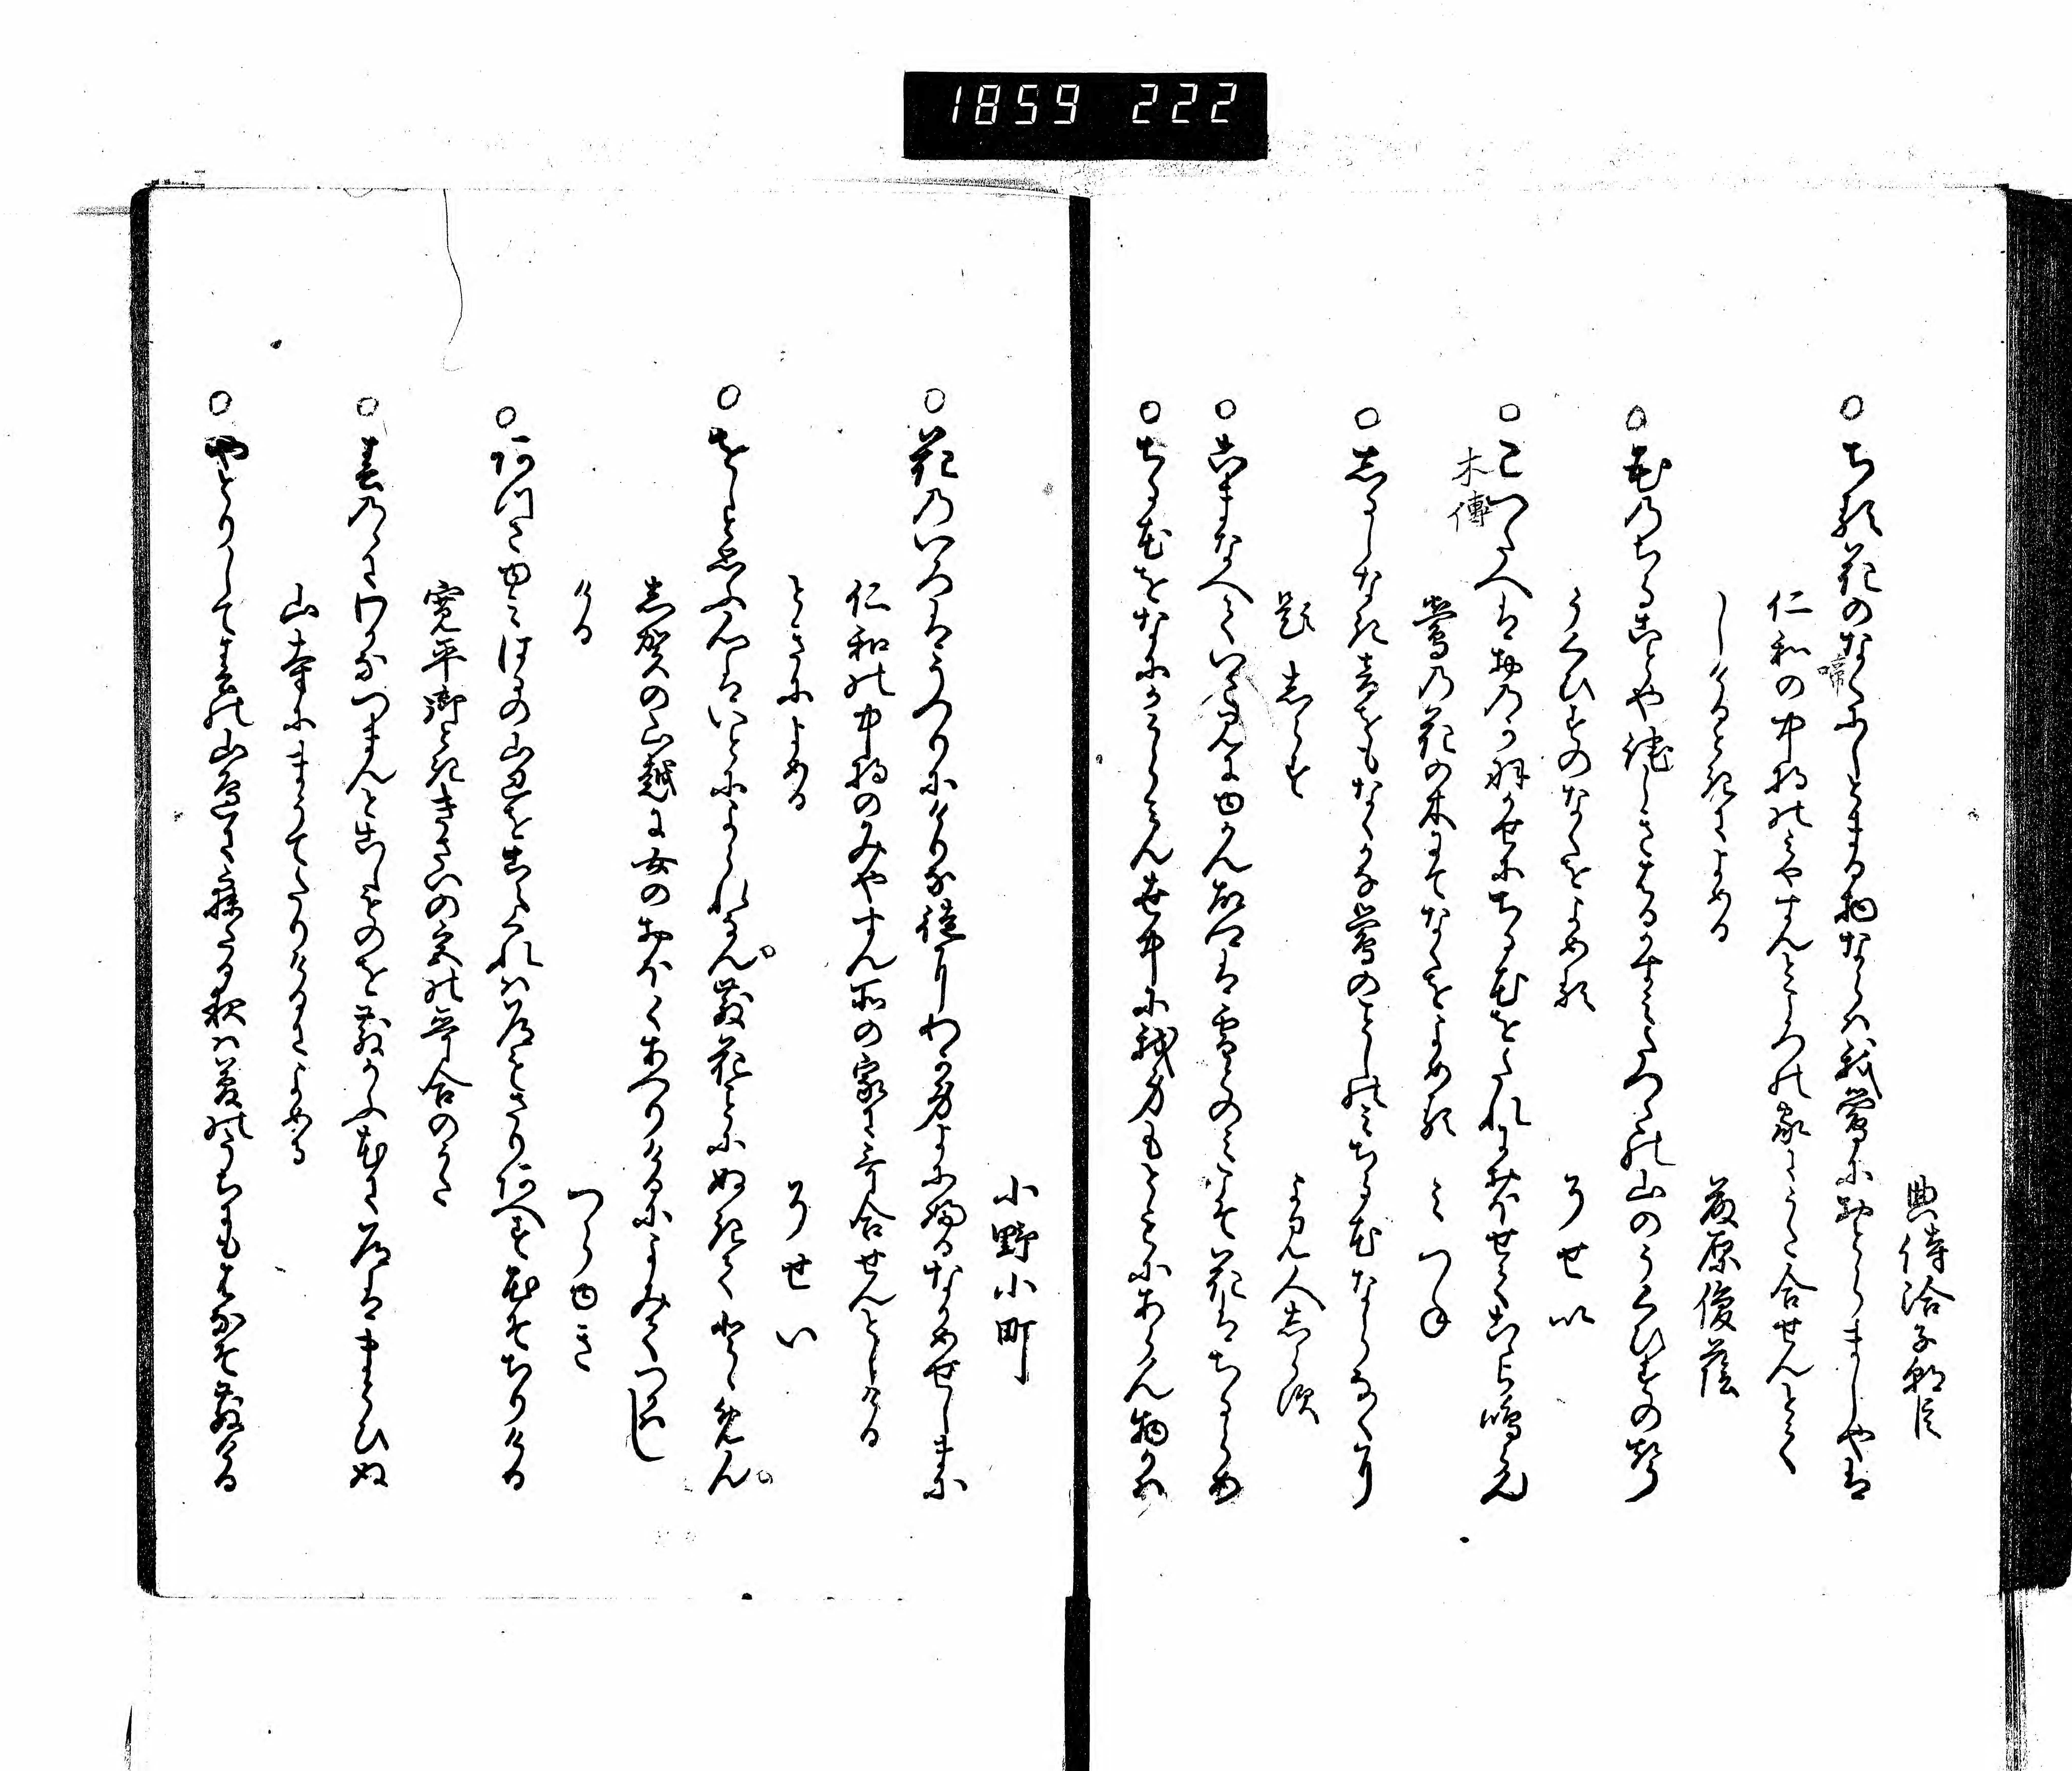 1859 222
典侍洽子朝臣
○ちる花のなくにしとまる物ならは我鶯におとらましやは
啼
仁和の中将のみやすんところの家にうた合せんとて
しける時によめる
藤原後蔭
○花のちることや侘しき春かすみたつたの山のうくひすの声
うくひすのなくをよめる
そせい
○こつたへはおのか羽かせにちる花をたれにおほせてこゝら鳴覧
木傳
鶯の花の木にてなくをよめる
みつね
○しるしなき音をもなくかな鶯のことしのみちる花ならなくに
題しらす
よみ人しらす
○こまなへていさ見にゆかん故郷は雪とのみこそ花はちるらめ
○ちる花をなにかうらみん世中に我身もともにあらん物かは
小野小町
○花のいろはうつりにけりな徒にわか身よにふるなかめせしまに
仁和の中将のみやすん所の家に哥合せんとしける
ときによめる
そせい
○をしと思ふ心はいとによられなん散花ことにぬきてとゝめん
志賀の山越に女のおほくあへりけるによみてつかはし
ける
つらゆき
○あつさゆみはるの山辺をこえくれは道もさりあへす花そちりける
寛平御時きさいの宮の哥合のうた
○春のゝにわかなつまんとこしものを散かふ花に道はまとひぬ
山寺にまうてたりけるによめる
○やとりして春の山辺に寐たる夜は夢のうちにも花そ散ける